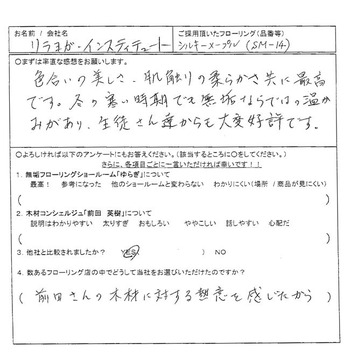 お名前 / 会社名
リラヨガ・インスティテュート
ご採用頂いたフローリング(品番等)
シルキーメープル (SM-14)
○まずは率直な感想をお願いします。
色合いの美しさ、肌触りの柔らかさ共に最高
です。冬の寒い時期でも無垢ならではの温か
みがあり、生徒さん達からも大変好評です。
○よろしければ以下のアンケートにもお答えください。(該当するところに○をしてください。)
さらに、各項目ごとに一言いただければ幸いです!!
1. 無垢フローリングショールーム「ゆらぎ」について
最高! 参考になった 他のショールームと変わらない わかりにくい(場所 / 商品が見にくい)
2. 木材コンシェルジュ「前田 英樹」について
説明はわかりやすい 太りすぎ おもしろい ややこしい 話しやすい 心配だ
3. 他社と比較されましたか? YES NO
4. 数あるフローリング店の中でどうして当社をお選びいただけたのですか?
( 前田さんの木材に対する熱意を感じたから )